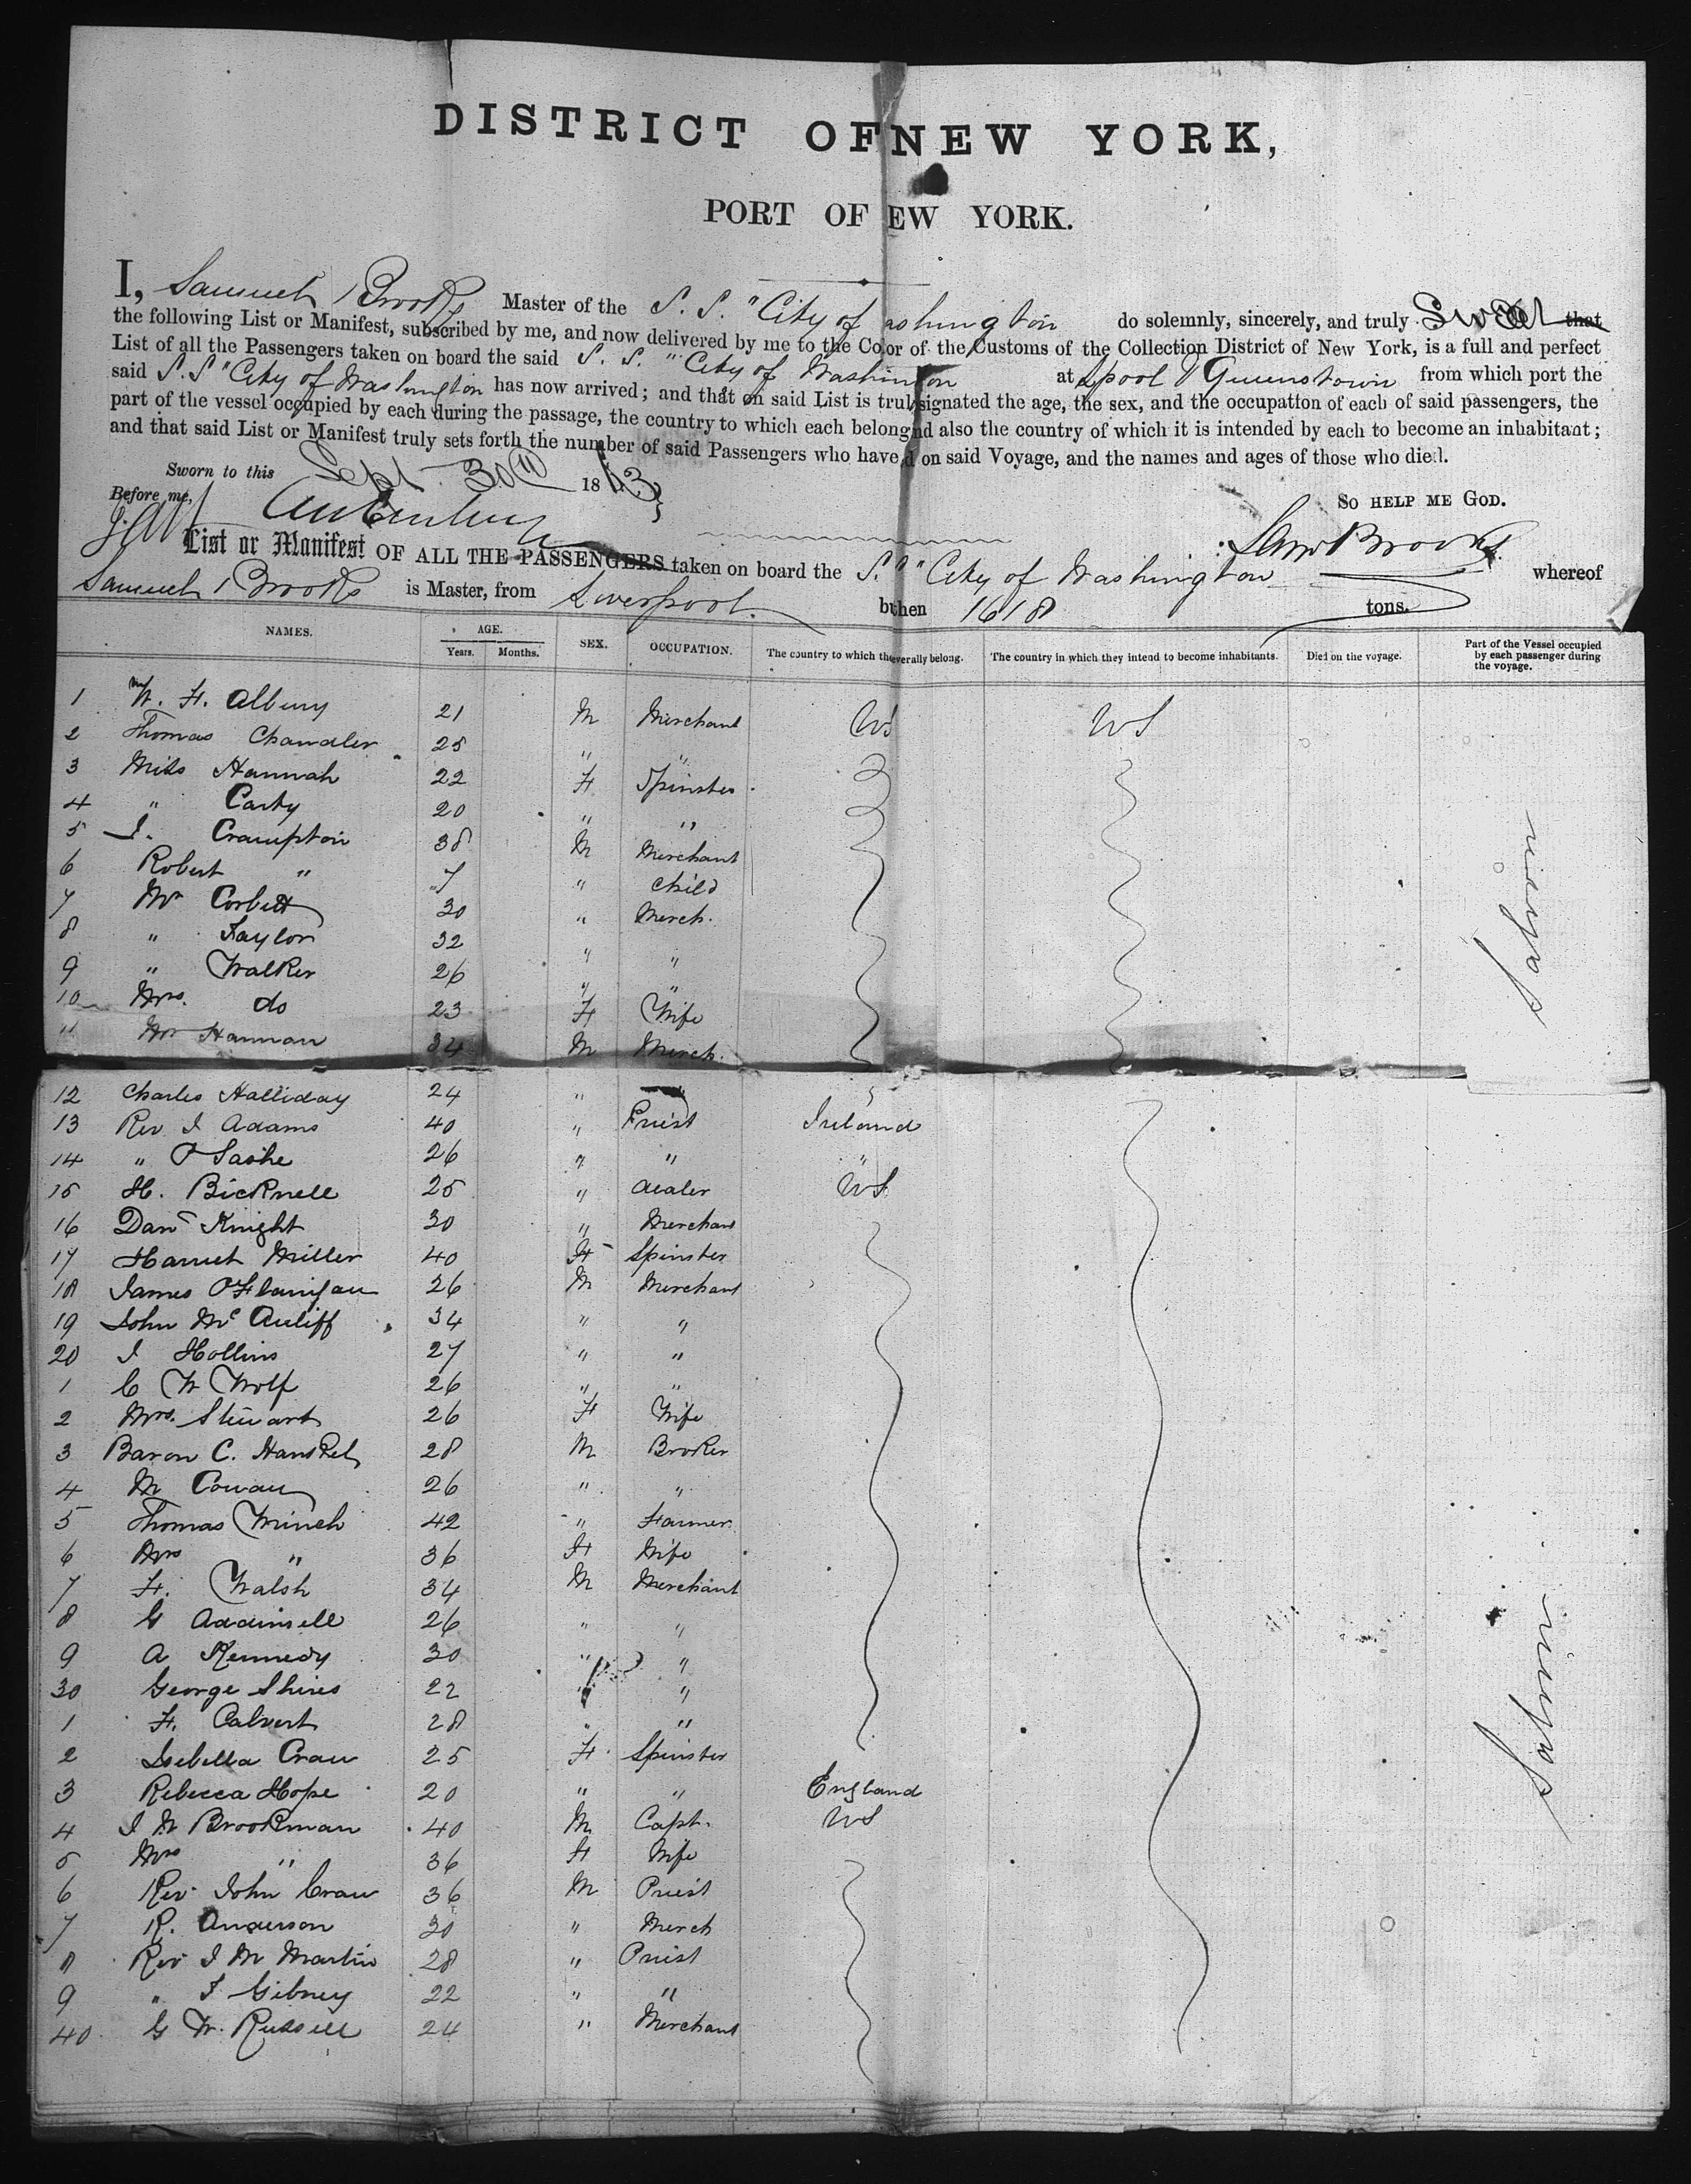 DISTRICT OF NEW YORK,
PORT OF EW YORK.
I, Samuel Brooks Master of the S. S. "City of ashington do solemnly, sincerely, and truly Swear that
the following List or Manifest, subscribed by me, and now delivered by me to the Co or of the Customs of the Collection District of New York, is a full and perfect
List of all the Passengers taken on board the said S. S. "City of Washington at Lpool & Queenstown from which port the
said S. S "City of Washington has now arrived; and that on said List is trul signated the age, the sex, and the occupation of each of said passengers, the
part of the vessel occupied by each during the passage, the country to which each belong nd also the country of which it is intended by each to become an inhabitant;
and that said List or Manifest truly sets forth the number of said Passengers who have d on said Voyage, and the names and ages of those who died.
Sworn to this Sept 30th 1863
So HELP ME GOD.
Before me,
Saml Brooks
List or Manifest OF ALL THE PASSENGERS taken on board the S. S "City of Washington whereof
Samuel Brooks is Master, from Liverpool. b then 1618 tons.
NAMES. AGE. Years. Months. SEX. OCCUPATION. The country to which th everally belong. The country in which they intend to become inhabitants. Died on the voyage. Part of the Vessel occupied by each passenger during the voyage.
1 W. H. Albury 21 M Merchant US US
2 Thomas Chandler 25 " "
3 Miss Hannah 22 F Spinster
4 " Carty 20 " "
5 I. Crampton 38 M Merchant
6 Robert " 7 " Child
7 Mr Corbett 30 " Merch.
8 " Taylor 32 " "
9 " Walker 26 " "
10 Mrs. do 23 F Wife
11 Mr Hannan 34 M Merch.
12 Charles Halliday 24 "
13 Rev I Adams 40 " Priest Ireland
14 " 26 " " "
15 H. Bicknell 25 " dealer US
16 Danl Knight 30 " Merchant
17 Harriet Miller 40 F Spinster
18 James O'Flanigan 26 M Merchant
19 John Mc Auliff 34 " "
20 I Hollins 27 " "
1 C W Wolf 26 " "
2 Mrs. Stewart 26 F Wife
3 Baron C. 28 M Broker
4 M Cowan 26 " "
5 Thomas Winch 42 " Farmer
6 Mrs " 36 F Wife
7 F. Walsh 34 M Merchant
8 G Addinsell 26 " "
9 A Kennedy 30 " "
30 George Shires 22 " "
1 F. Calvert 28 " "
2 Isebella Craw 25 F Spinster
3 Rebecca Hope 20 " " England
4 I W Brookman 40 M Capt. US
5 Mrs " 36 F Wife
6 Rev John Craw 36 M Priest
7 R. Anderson 30 " Merch
8 Rev I M Martin 28 " Priest
9 " I Gibney 22 " "
40 G W. Russell 24 " Merchant
Saloon
Saloon